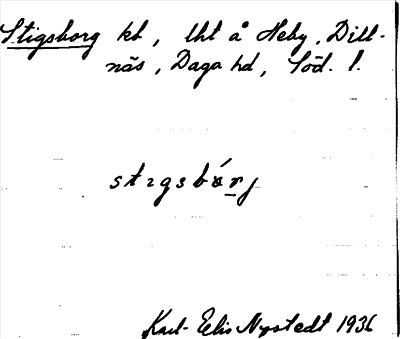 Stigsborg kb, lht å Heby, Dill-
näs, Daga hd, Söd. l.
stigsbórj
Karl-Elis Nystedt 1936